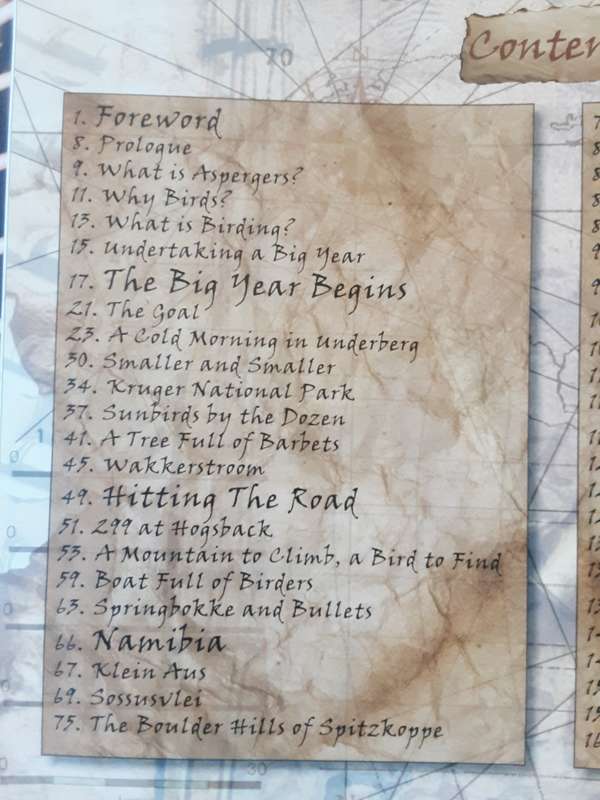 70
N
1. Foreword
8. Prologue
9. What is Aspergers?
11. Why Birds?
13. What is Birding?
15. Undertaking a Big Year
17. The Big Year Begins
21. The Goal
23. A Cold Morning in Underberg
30. Smaller and Smaller
34. Kruger National Park
37. Sunbirds by the Dozen
41. A Tree Full of Barbets
45. Wakkerstroom
49. Hitting The Road
51. 299 at Hogsback
53. A Mountain to Climb, a Bird to Find
59. Boat Full of Birders
63. Springbokke and Bullets
66. Namibia
67. Klein Aus
69. Sossusvlei
75. The Boulder Hills of Spitzkoppe
30